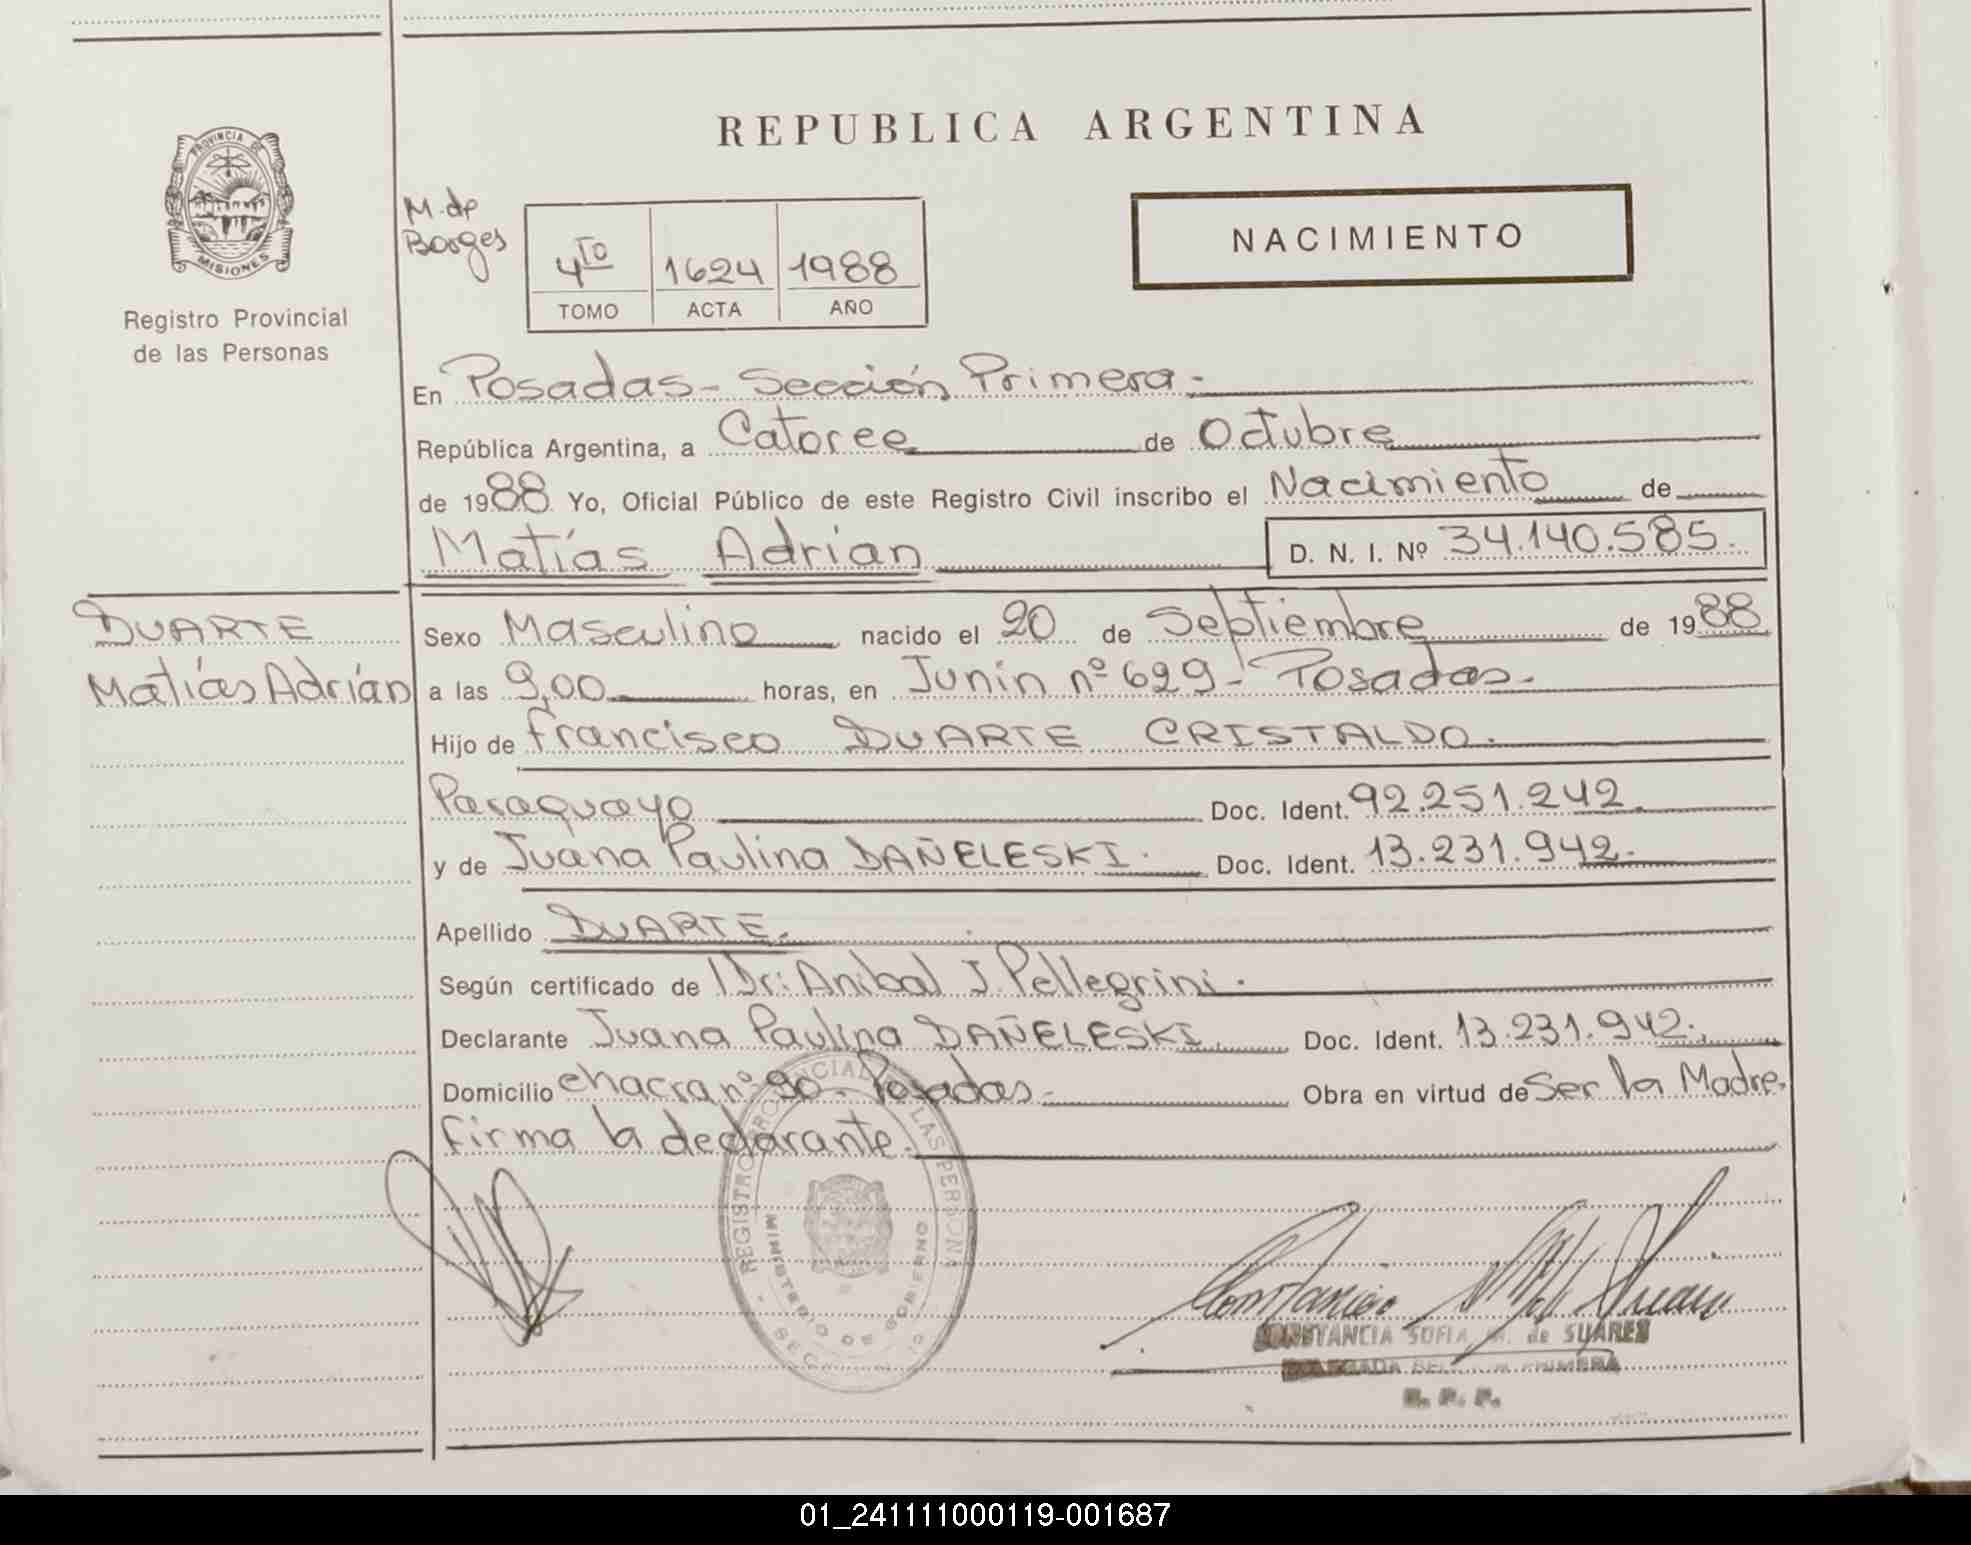 REPUBLICA ARGENTINA
PROVINCIA DE
MISIONES
Registro Provincial
de las Personas
M. de
Borges
4TO 1624 1988
TOMO ACTA AÑO
NACIMIENTO
En Posadas - Sección Primera.-
República Argentina, a Catorce de Octubre
de 1988 Yo, Oficial Público de este Registro Civil inscribo el Nacimiento de
Matías Adrian D. N. I. Nº 34.140.585.
DUARTE
Matías Adrián
Sexo Masculino nacido el 20 de Septiembre de 1988
a las 9,00 horas, en Junin nº 629 - Posadas.
Hijo de Francisco DUARTE CRISTALDO.
Paraguayo Doc. Ident. 92.251.242.
y de Juana Paulina DAÑELESKI. Doc. Ident. 13.231.942.
Apellido DUARTE.
Según certificado de Dr: Anibal J. Pellegrini.
Declarante Juana Paulina DAÑELESKI. Doc. Ident. 13.231.942.
Domicilio chacra nº 90 - Posadas. Obra en virtud de Ser la Madre.
firma la declarante.
REGISTRO PROVINCIAL LAS PERSONA
MINISTERIO DE GOBIERNO
CONSTANCIA SOFIA M. de SUARES
PRIMERA
R. P. P.
01_241111000119-001687